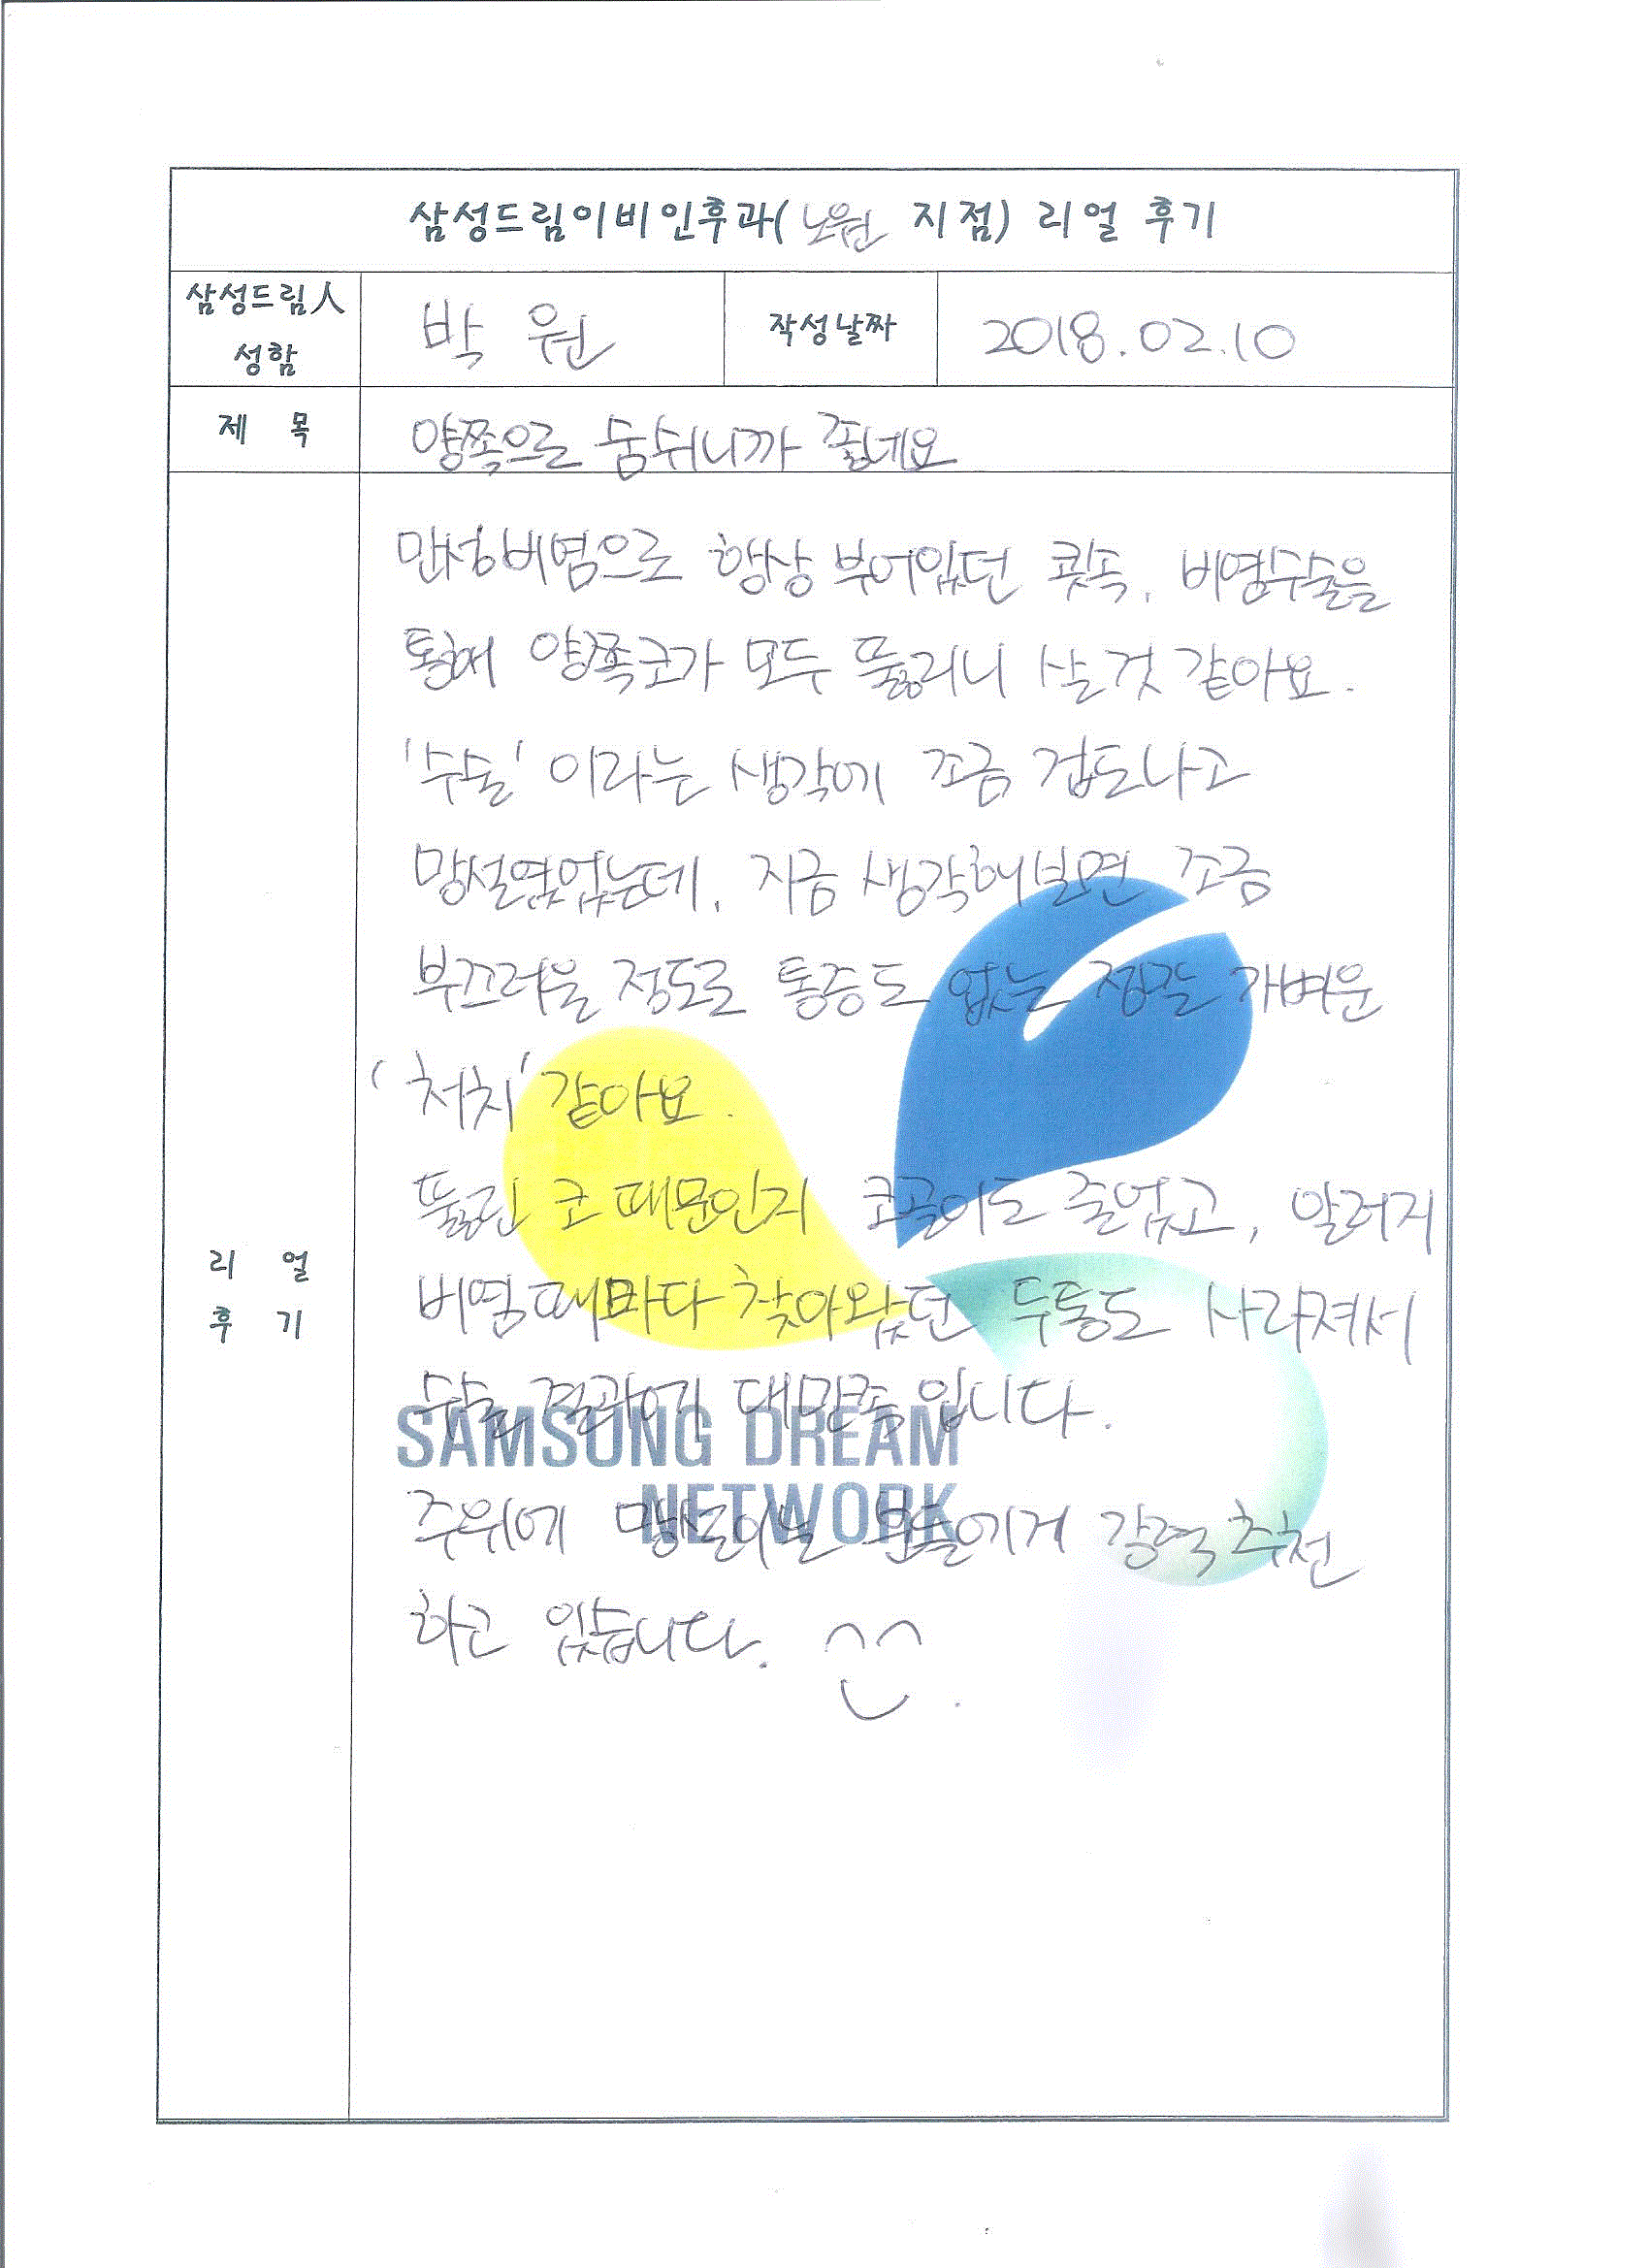 삼성드림이비인후과(노원 지점) 리얼 후기
삼성드림人
성함
박 원
작성날짜
2018.02.10
제 목
양쪽으로 숨쉬니까 좋네요
리 얼
후 기
만성비염으로 항상 부어있던 콧속. 비염수술을
통해 양쪽코가 모두 뚫리니 살것 같아요.
'수술' 이라는 생각에 조금 겁도나고
망설였었는데, 지금 생각해보면 조금
부끄러울 정도로 통증도 없는 정말 가벼운
'처치' 같아요.
뚫린 코 때문인지 코골이도 줄었고, 알러지
비염때마다 찾아왔던 두통도 사라져서
수술 결과에 대만족 입니다.
SAMSUNG DREAM
NETWORK
주위에 망설이는 분들에게 강력 추천
하고 있습니다.